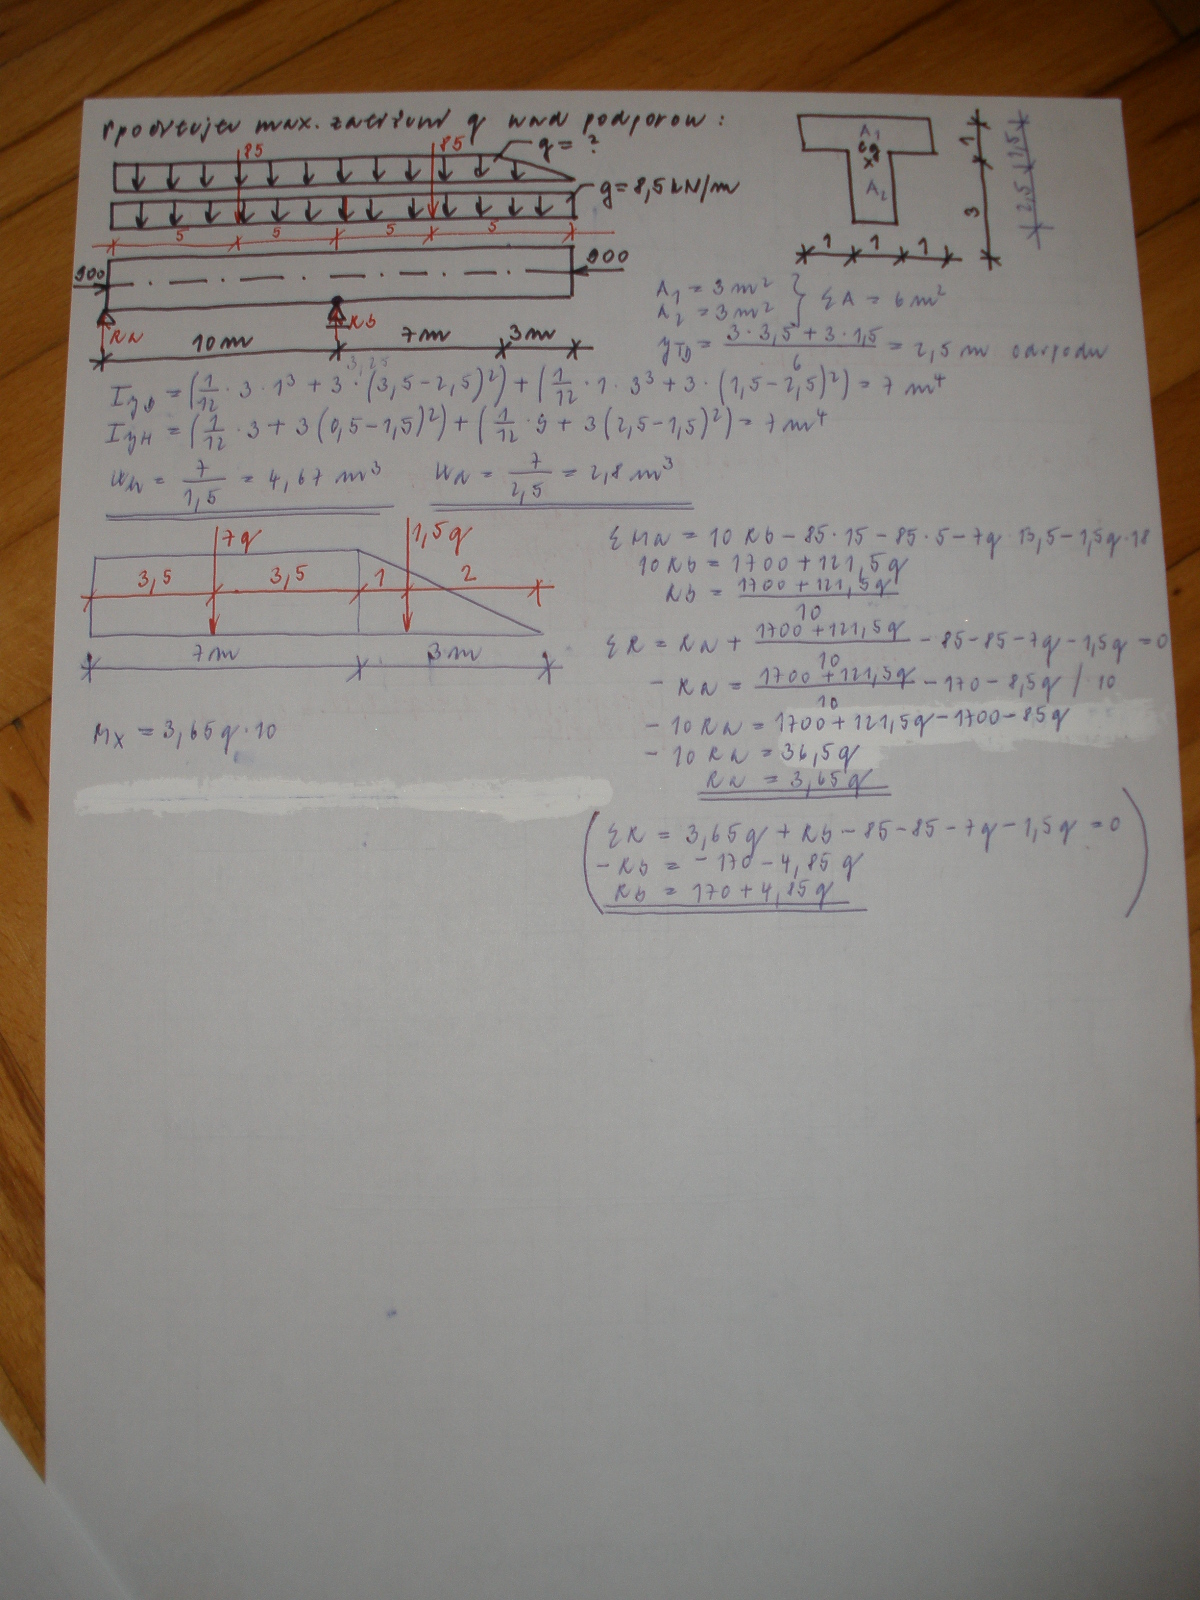 max. zatížení q nad podporou :
85
85
q = ?
g = 8,5 kN/m
5
5
5
5
900
900
Ra
Rb
10 m
7 m
3 m
A1
Cg
x
A2
1
3
1,5
2,5
1
1
1
A1 = 3 m²
A2 = 3 m²
ΣA = 6 m²
yTD = 3 · 3,5 + 3 · 1,5 / 6 = 2,5 m odspodu
3,25
IyD = (1/12 · 3 · 1³ + 3 · (3,5 - 2,5)²) + (1/12 · 1 · 3³ + 3 · (1,5 - 2,5)²) = 7 m⁴
IyH = (1/12 · 3 + 3 (0,5 - 1,5)²) + (1/12 · 9 + 3 (2,5 - 1,5)²) = 7 m⁴
= 7/1,5 = 4,67 m³
= 7/2,5 = 2,8 m³
7q
1,5q
3,5
3,5
1
2
7 m
3 m
Mx = 3,65q · 10
ΣMa = 10 Rb - 85 · 15 - 85 · 5 - 7q · 13,5 - 1,5q · 18
10 Rb = 1700 + 121,5q
Rb = 1700 + 121,5q / 10
ΣR = Ra + 1700 + 121,5q / 10 - 85 - 85 - 7q - 1,5q = 0
- Ra = 1700 + 121,5q / 10 - 170 - 8,5q / · 10
- 10 Ra = 1700 + 121,5q - 1700 - 85q
- 10 Ra = 36,5q
Ra = 3,65q
(ΣR = 3,65q + Rb - 85 - 85 - 7q - 1,5q = 0
- Rb = - 170 - 4,85q
Rb = 170 + 4,85q)